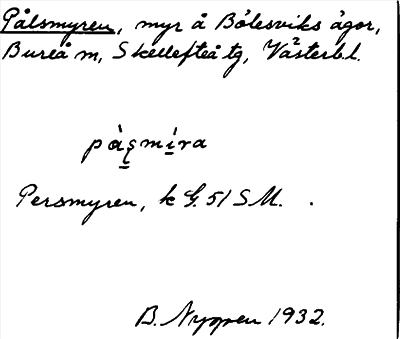 Pålsmyren, myr å Bölesviks ägor,
Bureå m, Skellefteå tg, Västerbl.
Persmyren, k G. 51 SM.
B. Nygren 1932.